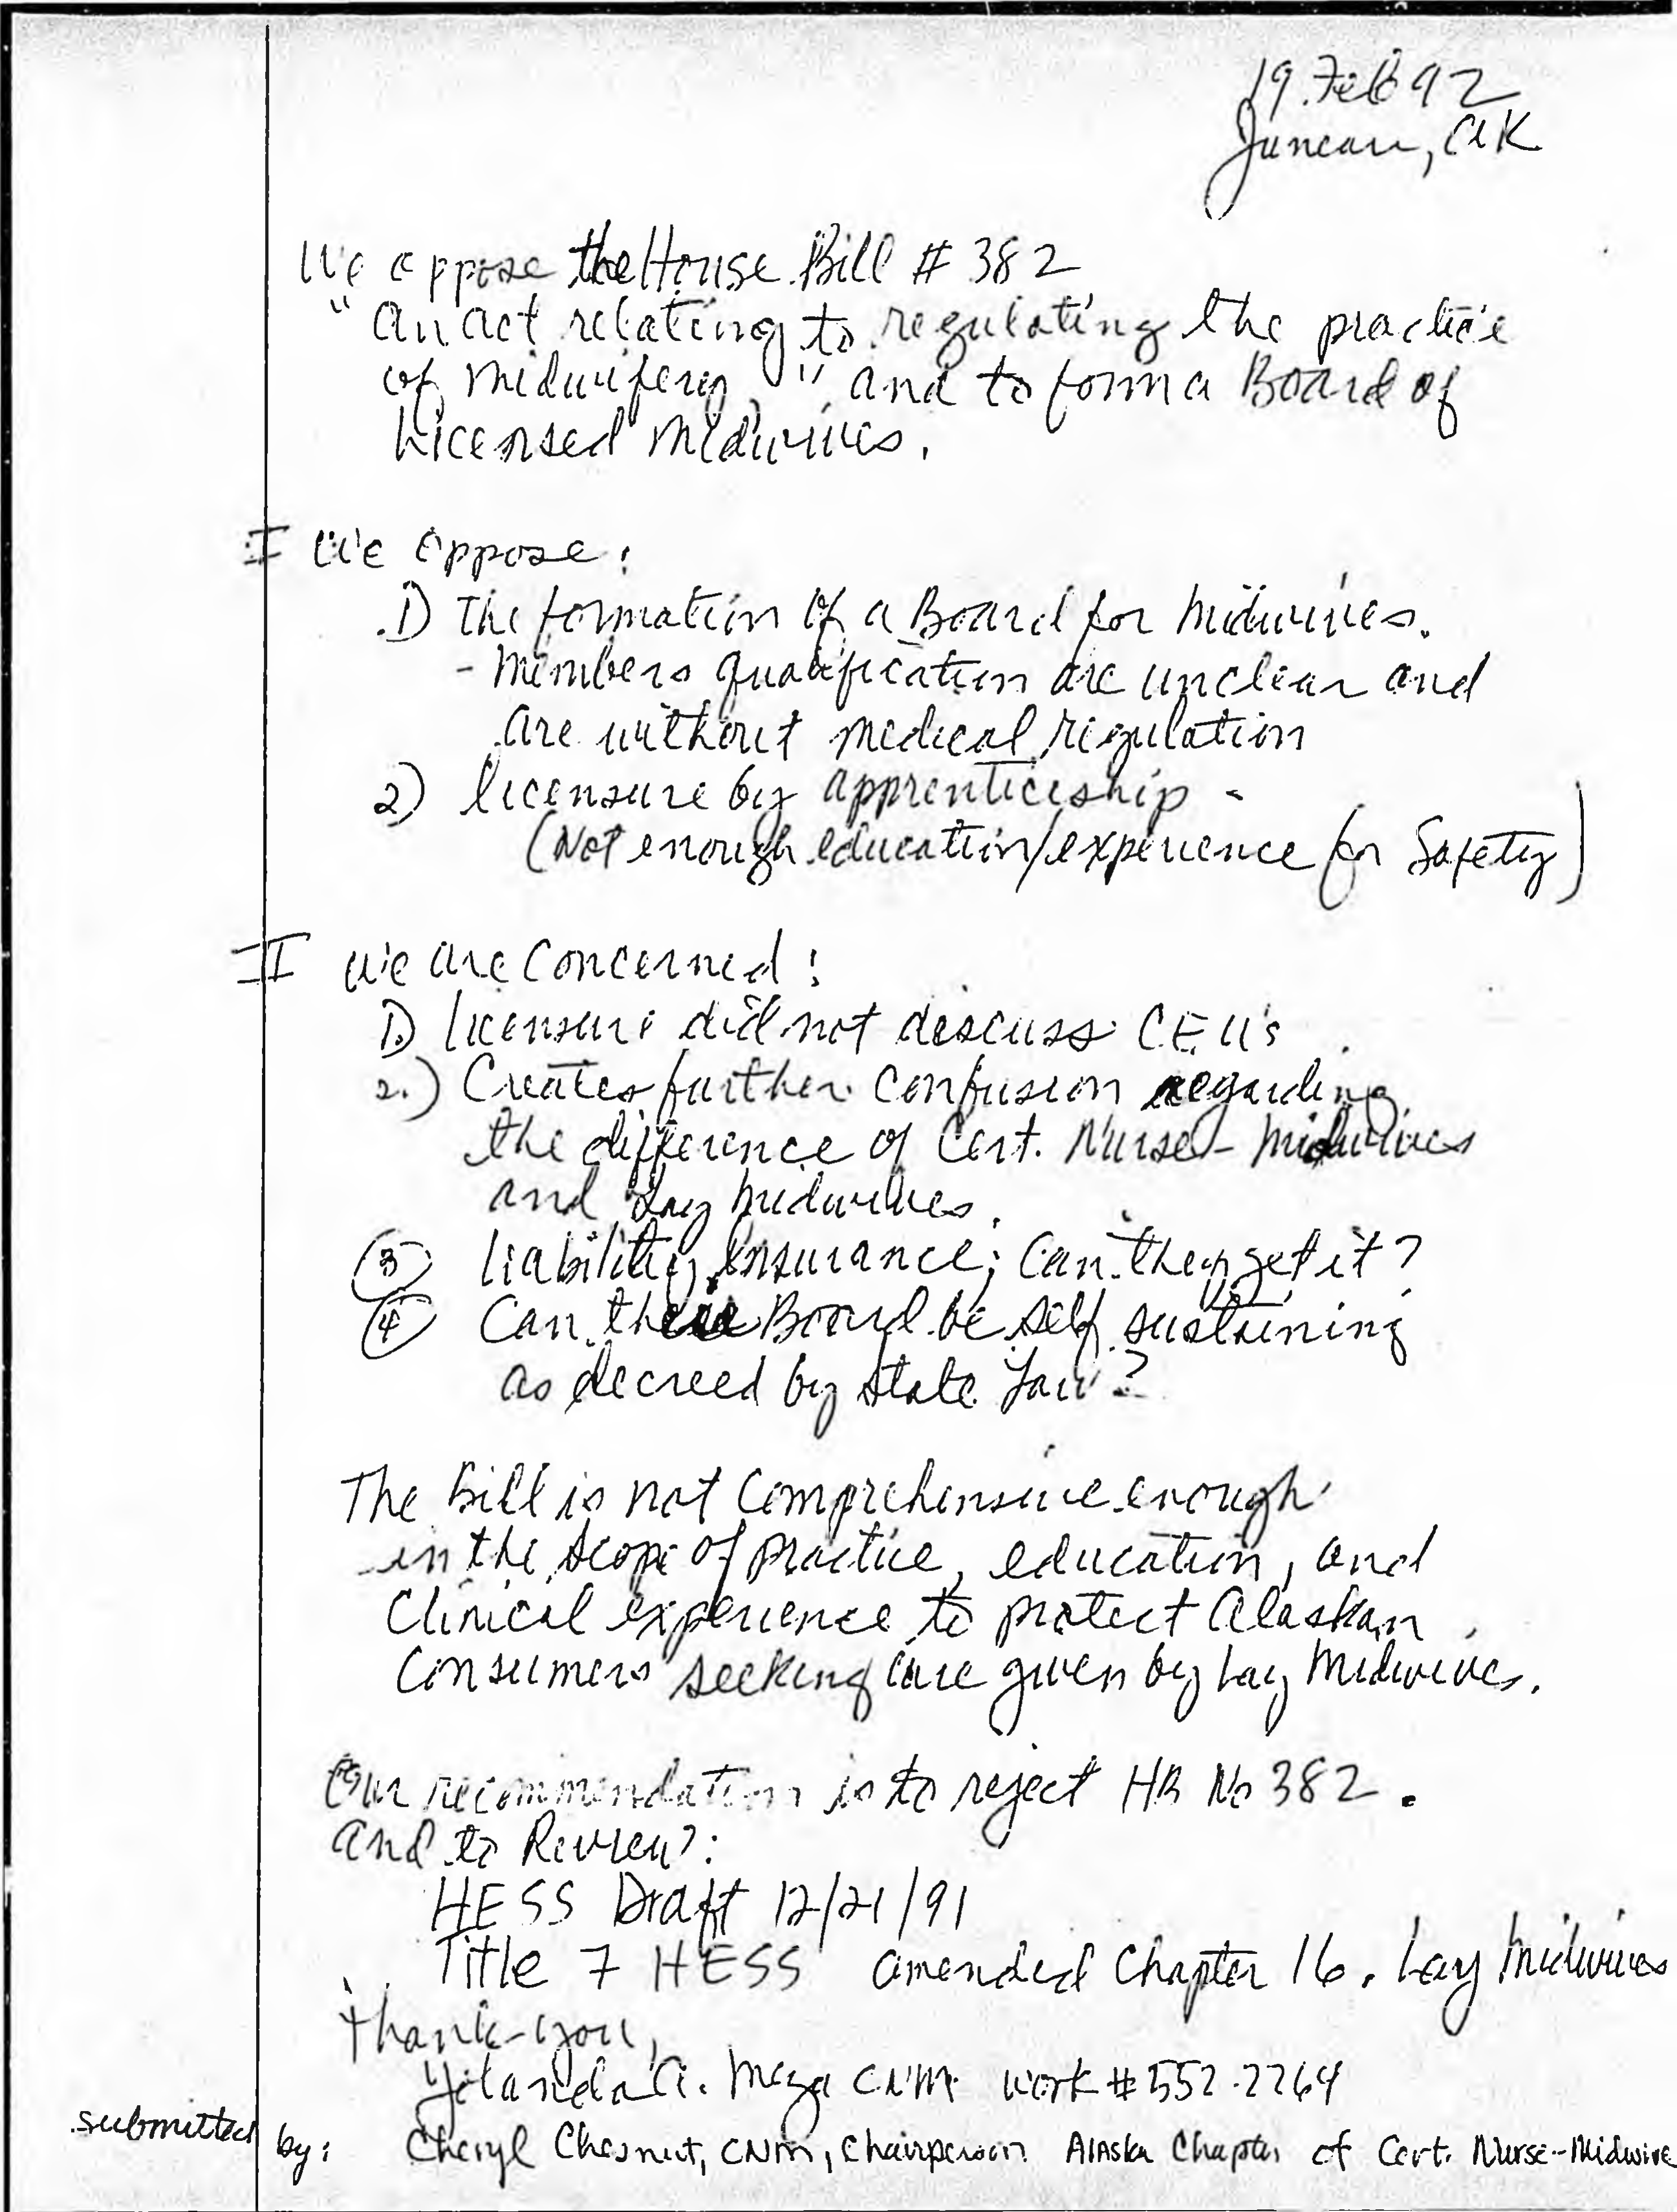 19 Feb 92
Juneau, AK
We oppose the House Bill # 382
"An act relating to regulating the practice
of midwifery," and to form a Board of
Licensed Midwives.
I We oppose:
1) The formation of a Board for Midwives.
- Members qualification are unclear and
are without medical regulation
2) licensure by apprenticeship -
(Not enough education/experience for Safety)
II We are concerned:
1.) licensure did not discuss CEU's
2.) Creates further confusion regarding
the difference of Cert. Nurse-Midwives
and Lay Midwives.
3 liability insurance; Can they get it?
4 Can their Board be self sustaining
as decreed by State Law?
The bill is not comprehensive enough
in the scope of practice, education, and
clinical experience to protect Alaskan
Consumers seeking care given by Lay Midwives.
Our recommendation is to reject HB No 382.
and to Review:
HESS Draft 12/21/91
Title 7 HESS amended Chapter 16. Lay Midwives
Thank-you,
Yolanda Meza CNM work # 552-2264
submitted by: Cheryl Chesnut, CNM, Chairperson Alaska Chapter of Cert. Nurse-Midwive